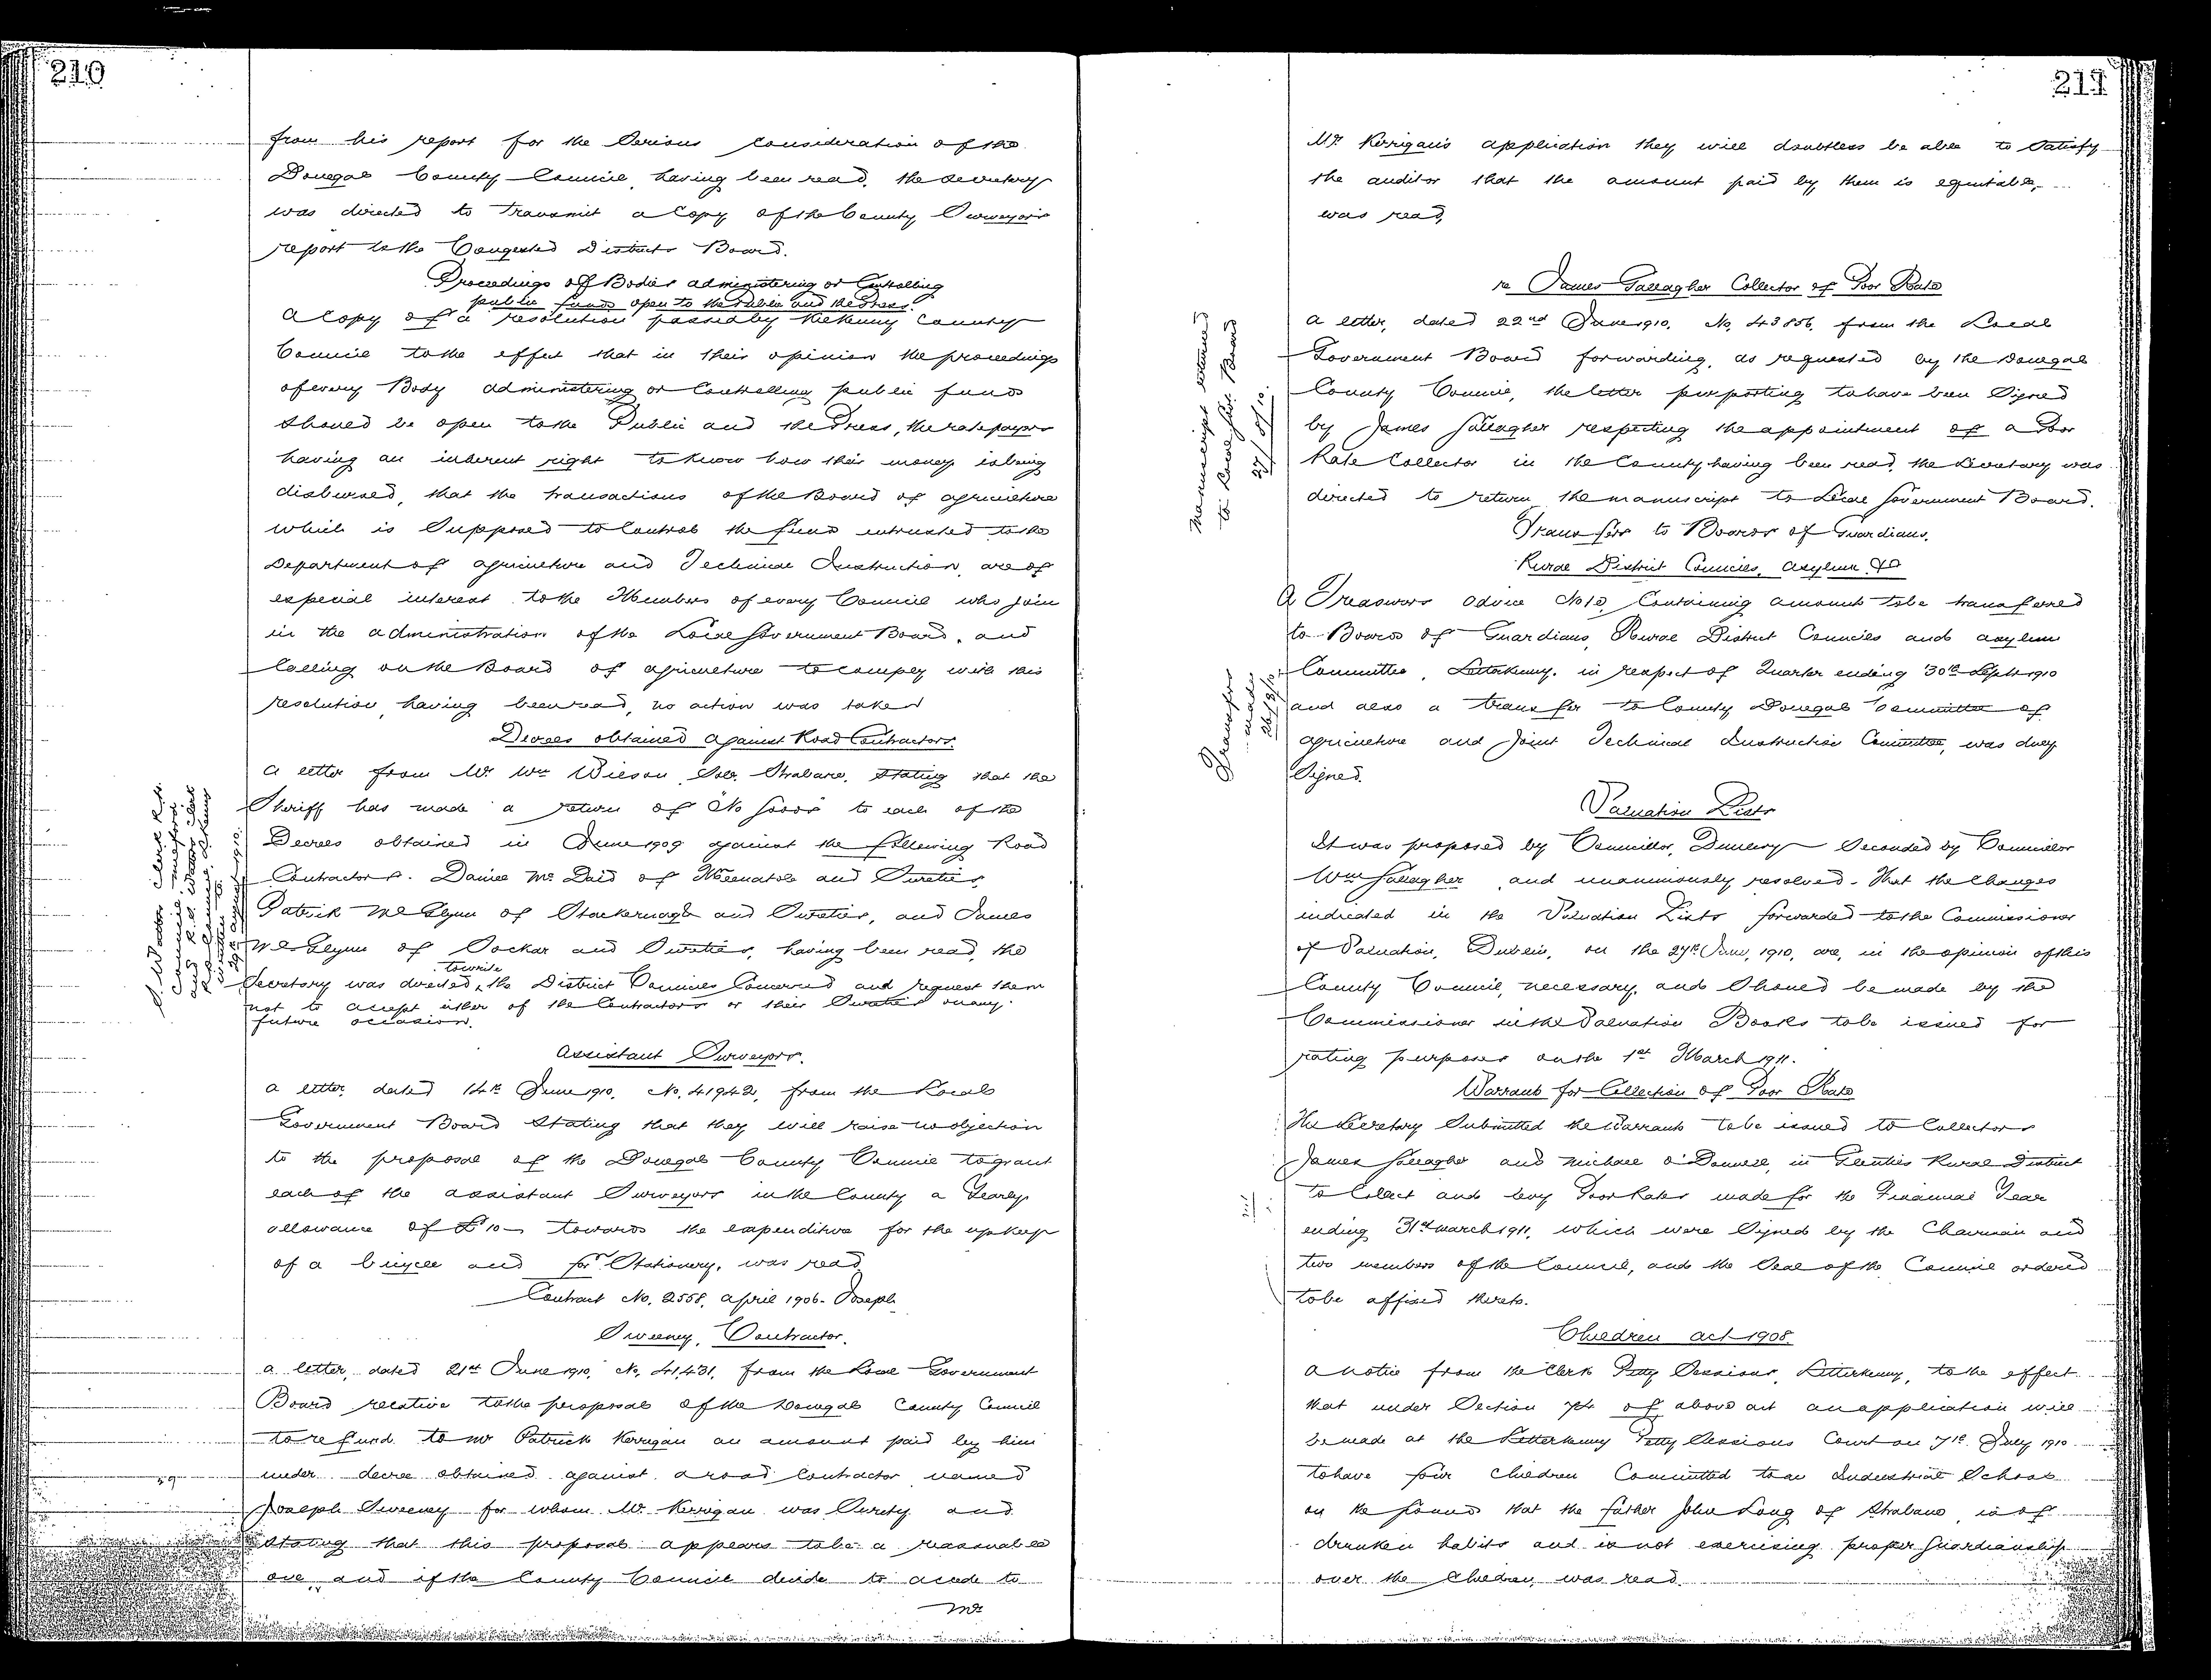 210
from his report for the Serious Consideration of the
Donegal County Council, having been read, the Secretary
was directed to transmit a Copy of the County Surveyor's
report to the Congested Districts Board.
Proceedings of Bodies administering or Controlling
public funds open to the Public and the Press.
A Copy of a resolution passed by Kilkenny County
Council to the effect that in their opinion the proceedings
of every Body administering or Controlling public funds
should be open to the Public and the Press, the ratepayers
having an inherent right to know how their money is being
disbursed, that the transactions of the Board of agriculture
which is Supposed to Control the funds entrusted to the
Department of agriculture and Technical Instruction, are of
especial interest to the Members of every Council who join
in the administration of the Local Government Board, and
Calling on the Board of agriculture to comply with this
resolution, having been read, no action was taken
Decrees obtained against Road Contractors.
A letter from Mr Wm Wilson, Solr. Strabane, stating that the
Sheriff has made a return of "No Goods" to each of the
Decrees obtained in June 1909 against the following Road
Contractors. Daniel Mc Daid of and Sureties,
Patrick Mc Glynn of and Sureties, and James
Mc Glynn of Dockar and Sureties, having been read, the
Secretary was directed to write the District Councils Concerned and request them
not to accept either of the Contractors or their Sureties on any
future occasion.
Assistant Surveyors.
A letter, dated 14th June 1910, No. 41942, from the Local
Government Board Stating that they will raise no objection
to the proposal of the Donegal County Council to grant
each of the assistant Surveyors in the County a Yearly
allowance of £10– towards the expenditure for the upkeep
of a bicycle and for Stationery, was read.
Contract No. 2558, April 1906– Joseph
Sweeney, Contractor.
A letter, dated 21st June 1910, No. 41,431, from the Local Government
Board relative to the proposal of the Donegal County Council
to refund to Mr Patrick Kerrigan an amount paid by him
under decree obtained against a road Contractor named
Joseph Sweeney for whom Mr. Kerrigan was Surety and
Stating that this proposal appears to be a reasonable
one, and if the County Council decide to accede to
Mr
211
Mr. Kerrigan's application they will doubtless be able to Satisfy
the auditor that the amount paid by them is equitable,
was read.
re James Gallagher Collector of Poor Rate
Manuscript returned
to Local Govt. Board
27/8/10.
A letter, dated 22nd June 1910, No. 43856, from the Local
Government Board forwarding, as requested by the Donegal
County Council, the letter purporting to have been Signed
by James Gallagher respecting the appointment of a Poor
Rate Collector in the County having been read, the Secretary was
directed to return the manuscript to Local Government Board.
Transfers to Boards of Guardians,
Rural District Councils, Asylum &c
Transfers
made
A Treasurers Advice No 13, Containing amounts to be transferred
to Boards of Guardians, Rural District Councils and Asylum
Committee, Letterkenny, in respect of Quarter ending 30th Septr 1910
and also a transfer to County Donegal Committee of
agriculture and Joint Technical Instruction Committee, was duly
Signed.
Valuation Lists
It was proposed by Councillor, Dunlevy Seconded by Councillor
Wm Gallagher, and unanimously resolved– That the Changes
indicated in the Valuation Lists forwarded to the Commissioner
of Valuation, Dublin, on the 27th June, 1910, are, in the opinion of this
County Council, necessary, and Should be made by the
Commissioner in the Valuation Books to be issued for
rating purposes on the 1st March 1911.
Warrants for Collection of Poor Rate
The Secretary Submitted the Warrants to be issued to Collectors
James Gallagher and Michael O'Donnell, in Glenties Rural District
to Collect and levy Poor Rates made for the Financial Year
ending 31st March 1911, which were Signed by the Chairman and
two members of the Council, and the Seal of the Council ordered
to be affixed thereto.
Children Act 1908.
A notice from the Clerk Petty Sessions, Letterkenny, to the effect
that under Section 74 of above act an application will
be made at the Letterkenny Petty Sessions Court on 7th July 1910
to have four children Committed to an Industrial School
on the ground that the father John Long of Strabane, is of
drunken habits and is not exercising proper Guardianship
over the Children, was read.